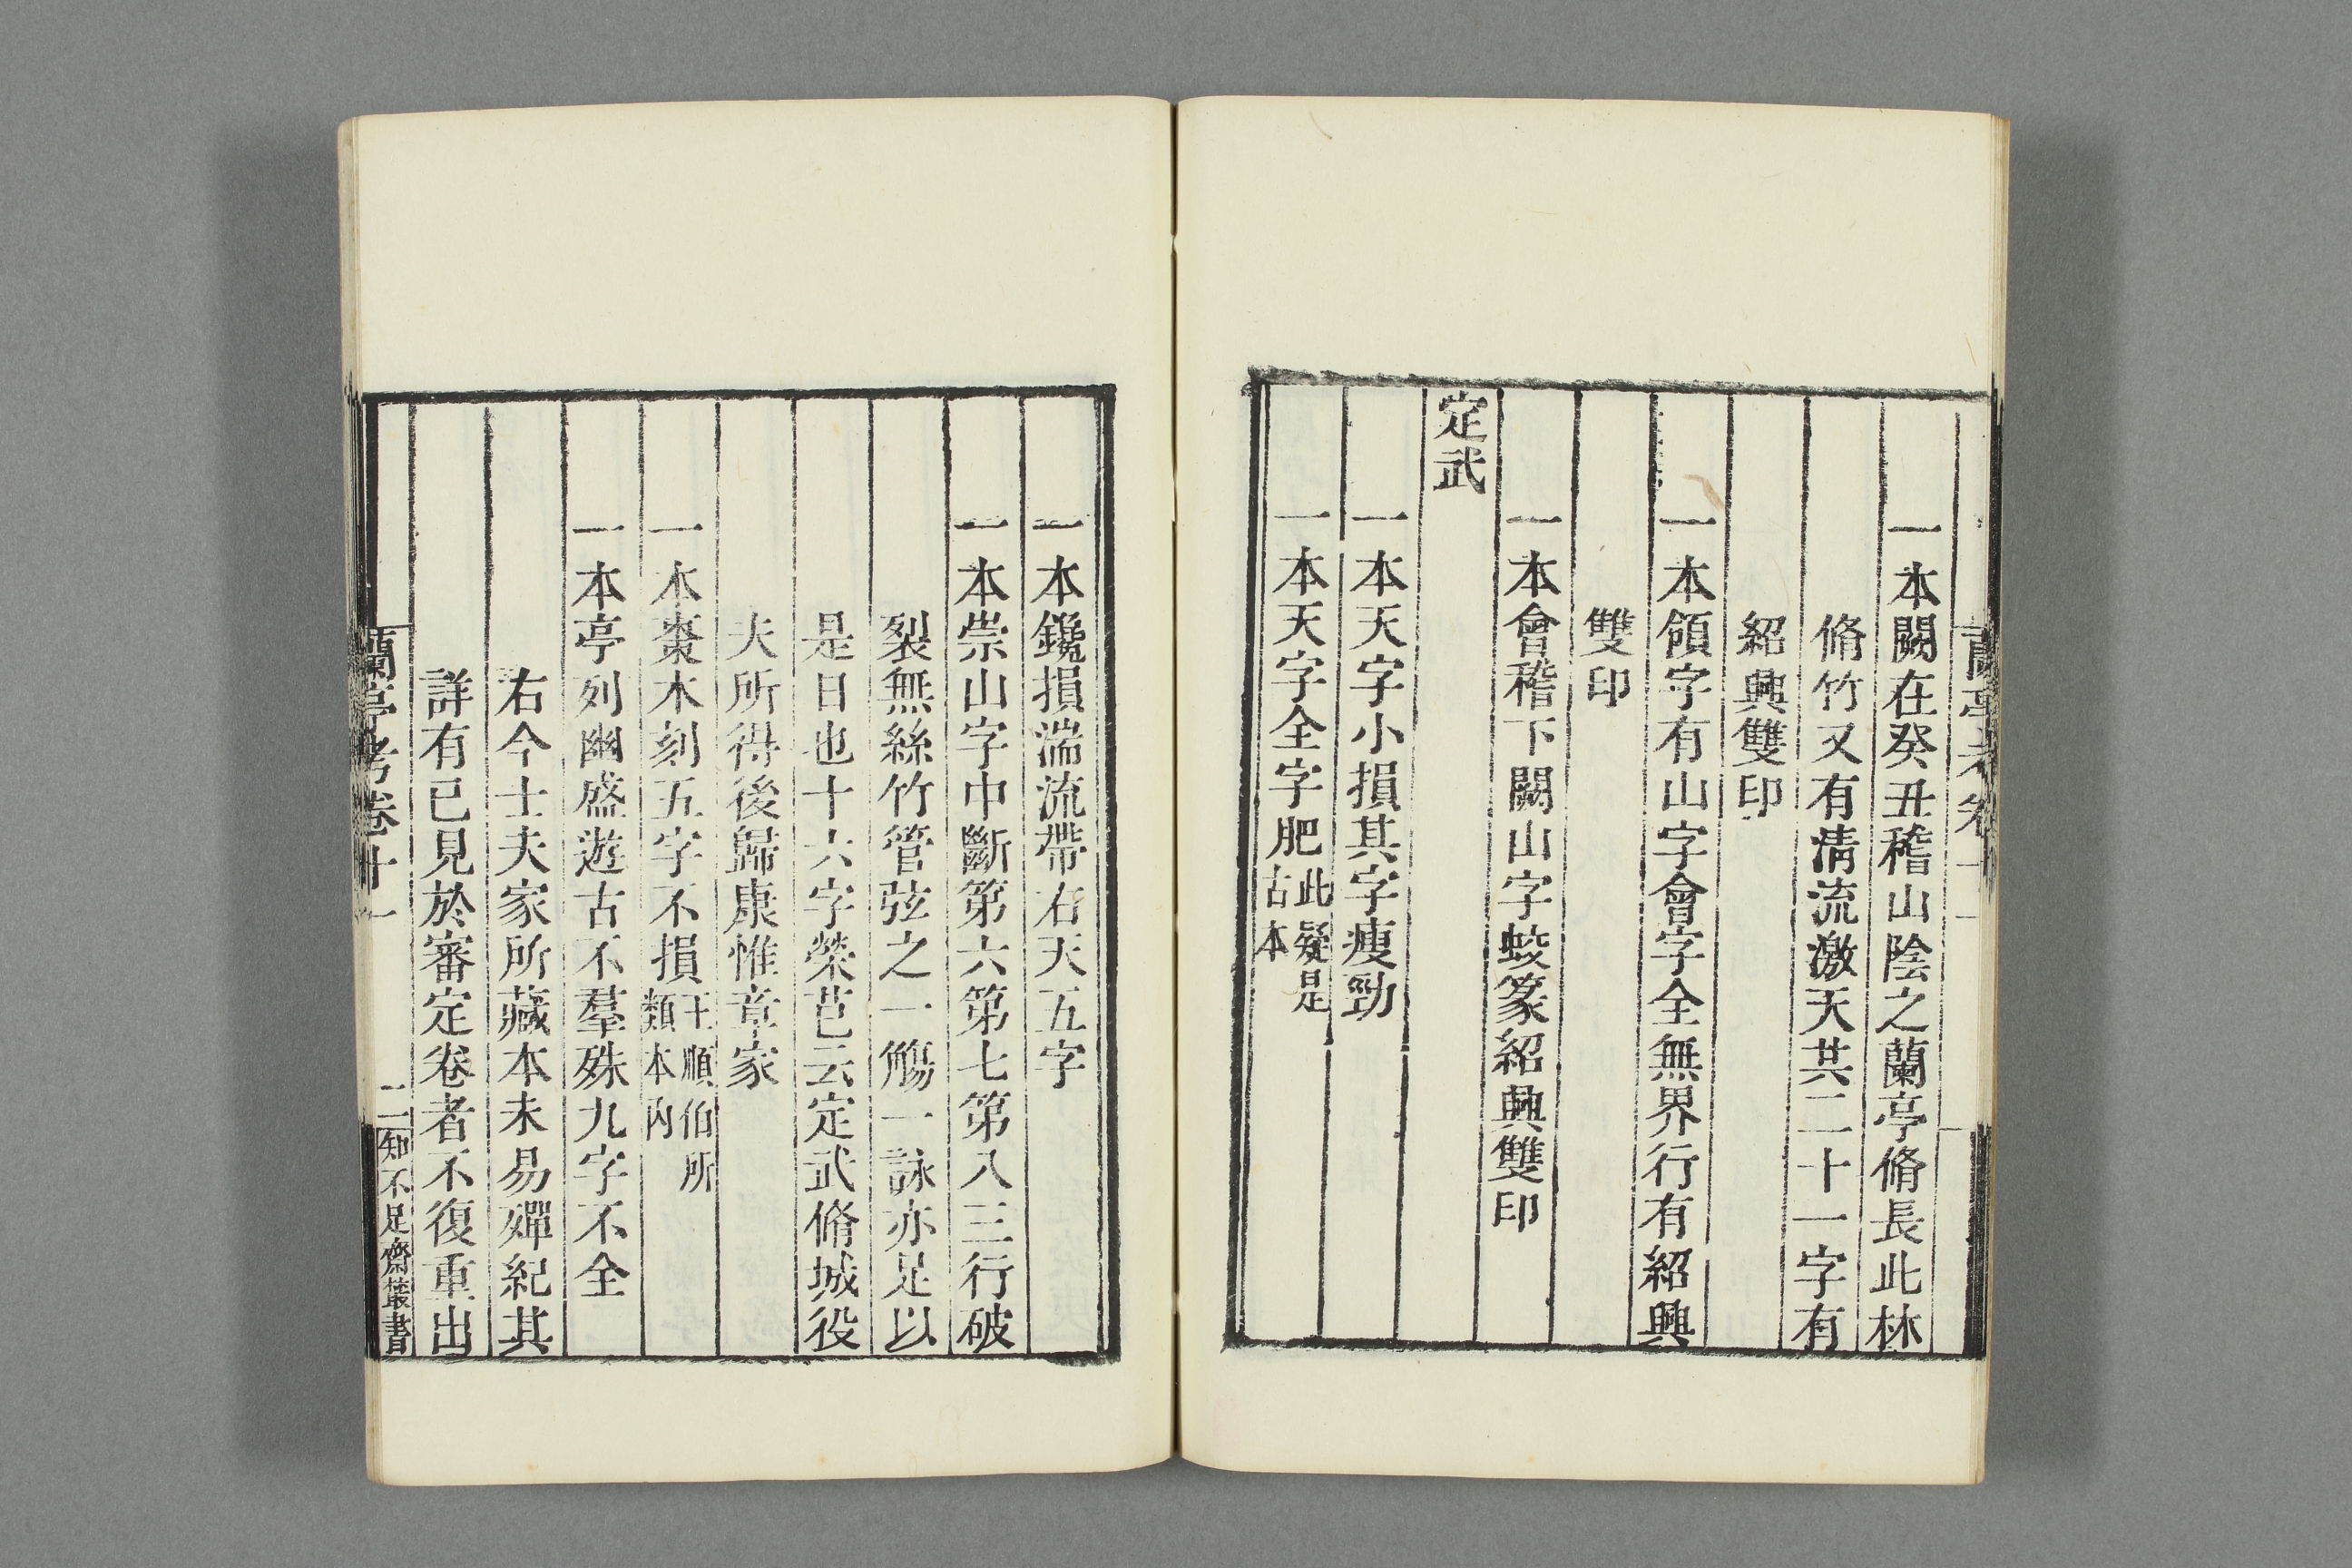 一本闕在癸丑稽山陰之蘭亭脩長此林
脩竹又有清流激天其二十一字有
紹興雙印
一本領字有山字會字全無界行有紹興
雙印
一本會稽下闕山字蛟篆紹興雙印
定武
一本天字小損其字瘦勁
一本天字全字肥此疑是
古本
一本鑱損湍流帶右天五字
一本崇山字中斷第六第七第八三行破
裂無絲竹管弦之一觴一詠亦足以
是日也十六字榮芑云定武脩城役
夫所得後歸康惟章家
一本棗木刻五字不損王順伯所
類本內
一本亭列幽盛遊古不羣殊九字不全
右今士夫家所藏本未易殫紀其
詳有已見於審定卷者不復重出
蘭亭考卷十一
二
知不足齋叢書